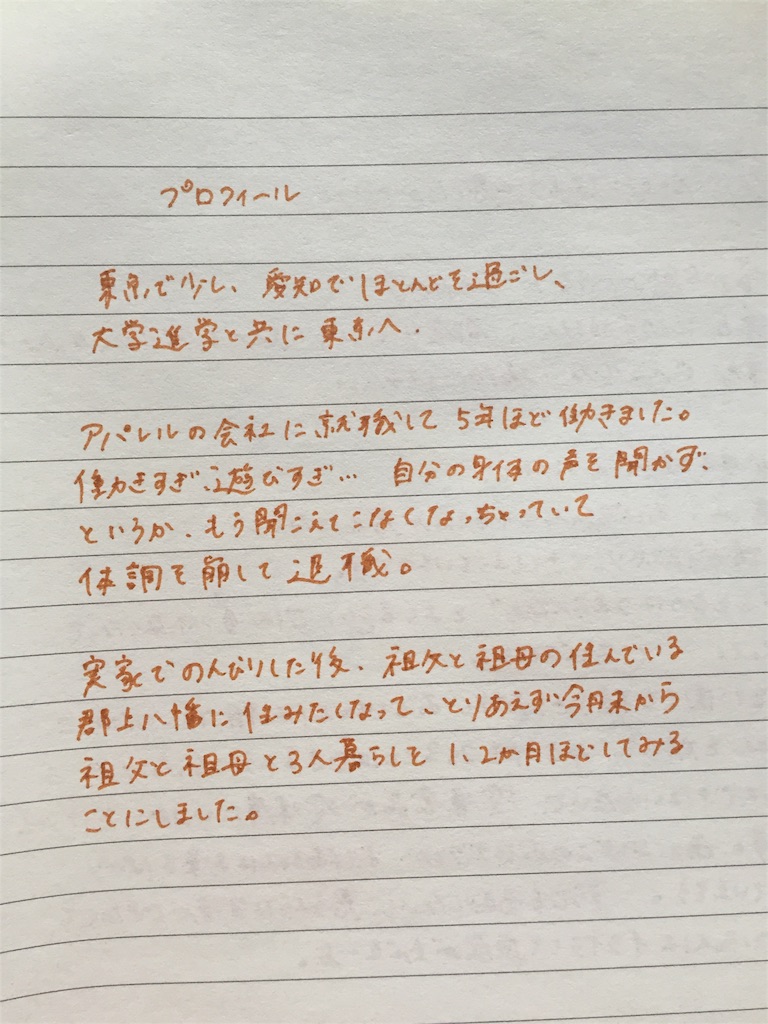 プロフィール
東京で少し、愛知でほとんどを過ごし、
大学進学と共に東京へ.
アパレルの会社に就職して 5年ほど働きました。
働きすぎ、遊びすぎ… 自分の身体の声を聞かず、
というか、もう聞こえてこなくなっちゃっていて
体調を崩して退職。
実家でのんびりした後、祖父と祖母の住んでいる
郡上八幡に住みたくなって、とりあえず今月末から
祖父と祖母と3人暮らしを 1、2か月ほどしてみる
ことにしました。